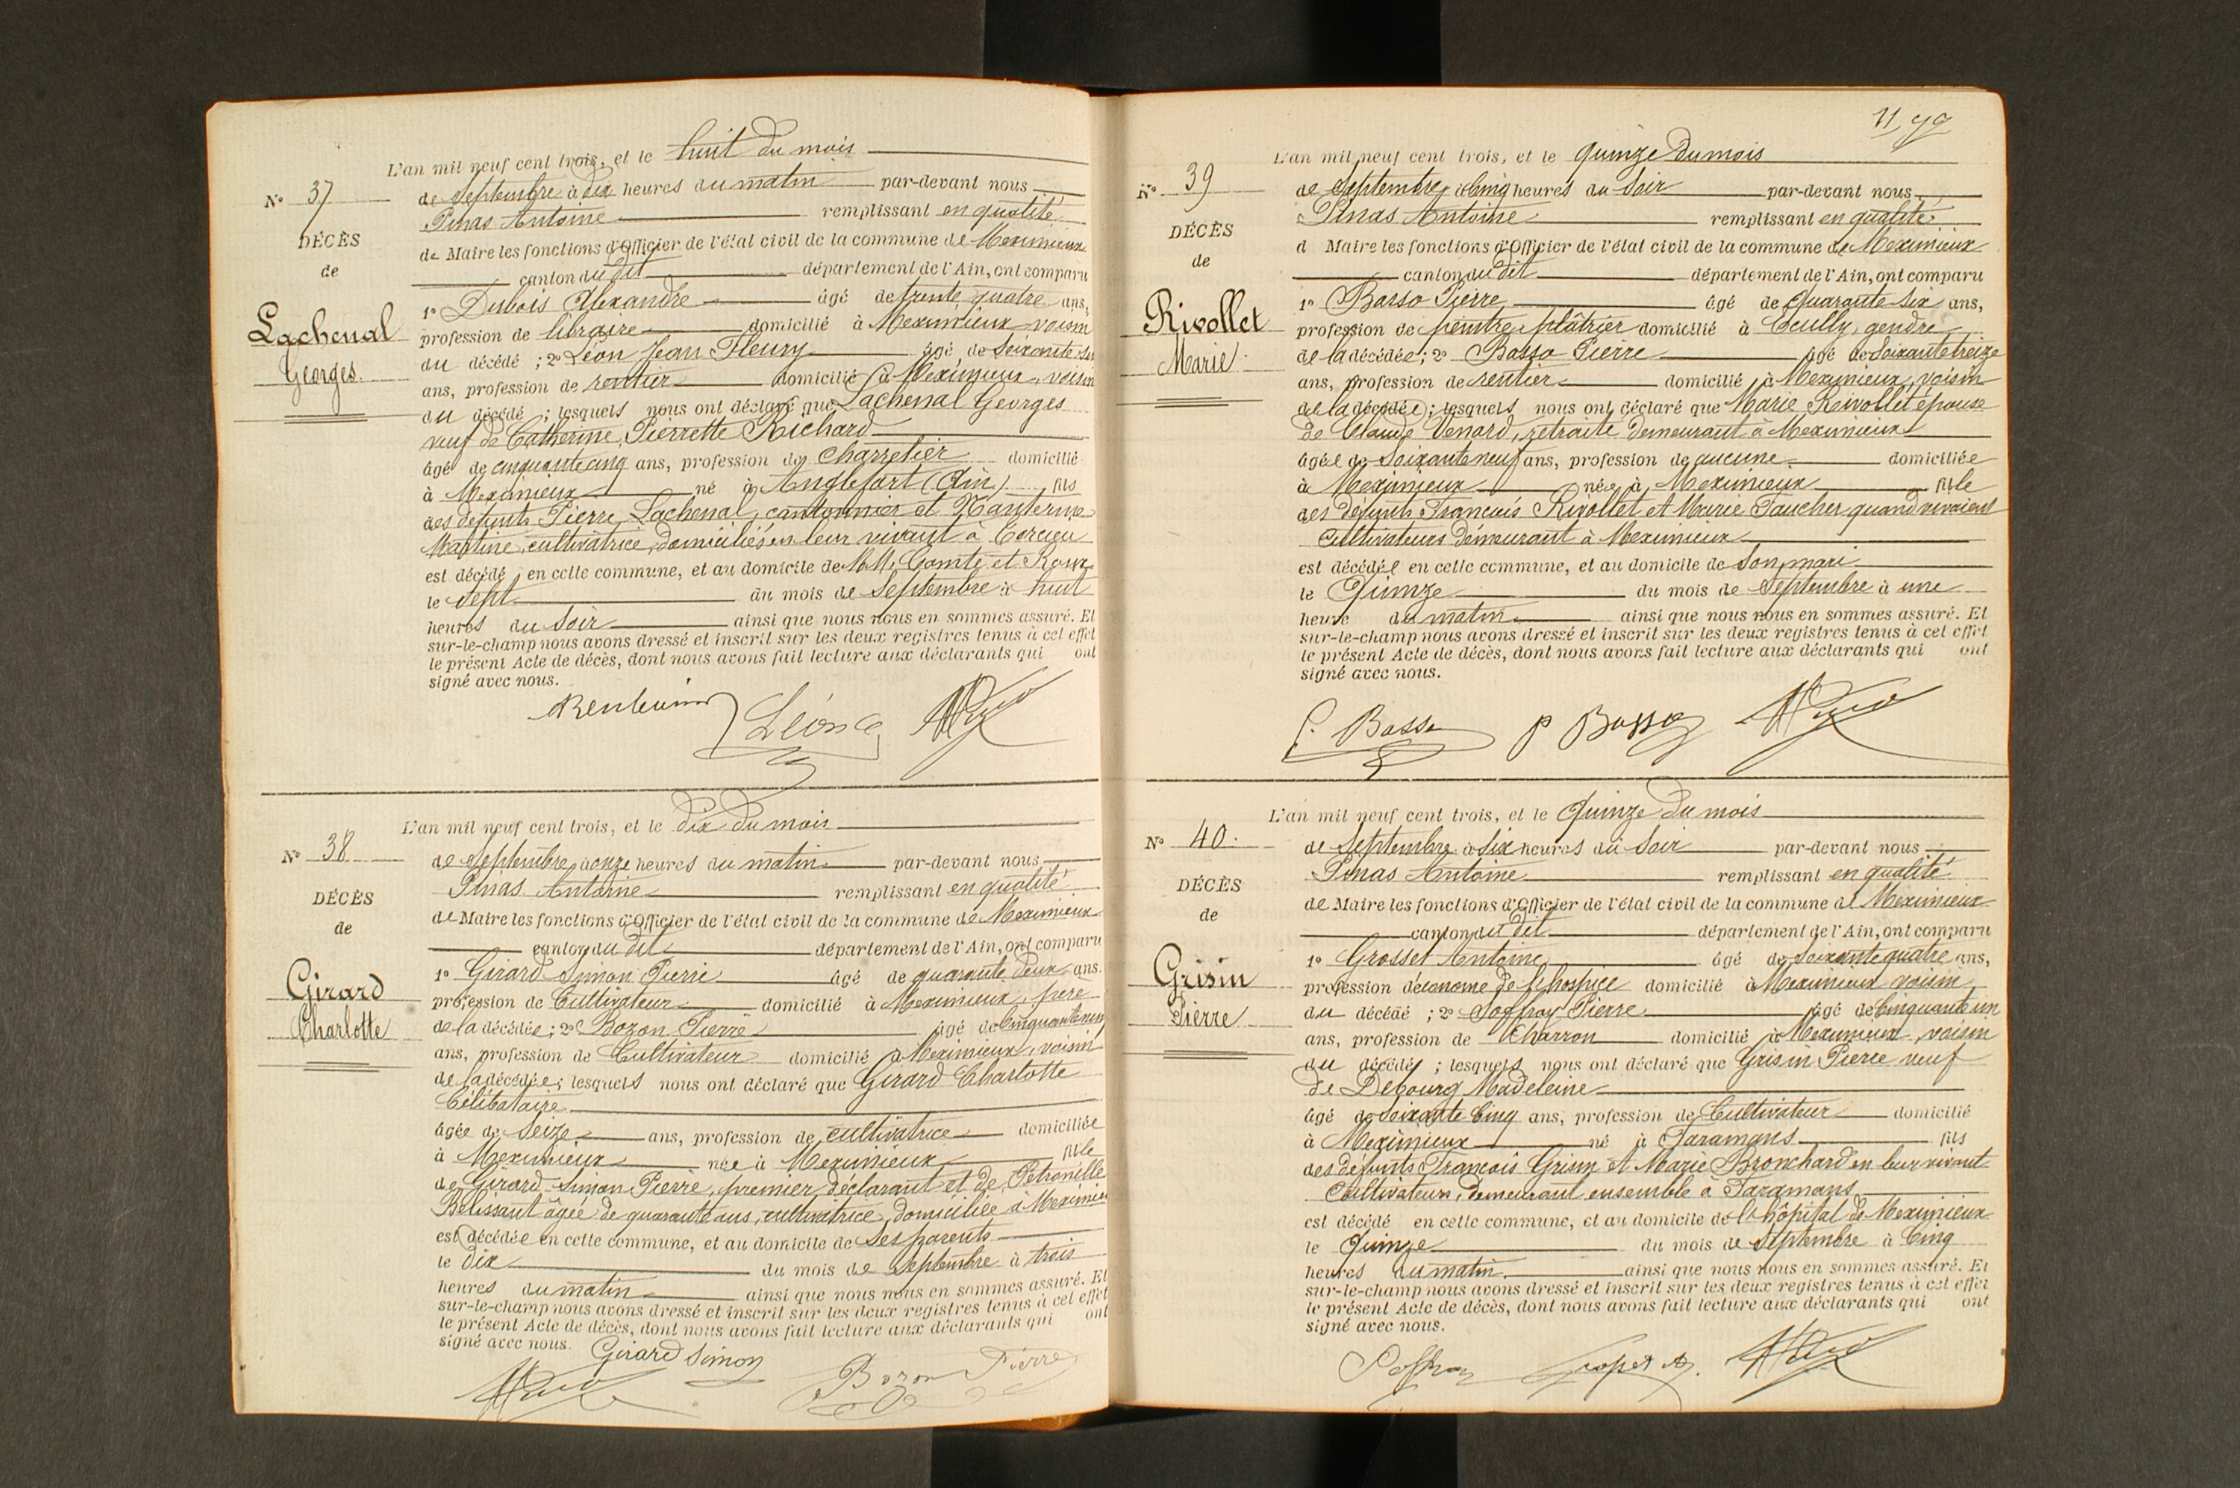 L'an mil neuf cent trois, et le huit du mois
N° 37
de Septembre à dix heures du matin par-devant nous
Pinas Antoine remplissant en qualité
DÉCÈS
de Maire les fonctions d'Officier de l'état civil de la commune de Meximieux
de
canton du dit département de l'Ain, ont comparu
1° Dubois Alexandre âgé de trente quatre ans,
Lachenal
profession de libraire domicilié à Meximieux voisin
du décédé ; 2° Léon Jean Fleury âgé de Soixante six
Georges
ans, profession de rentier domicilié à Meximieux, voisin
du décédé ; lesquels nous ont déclaré que Lachenal Georges
veuf de Catherine Pierrette Richard
âgé de cinquante cinq ans, profession de Charretier domicilié
à Meximieux né à Anglefort (Ain) fils
des défunts Pierre Lachenal, cantonnier et Nanterme
Martine, cultivatrice, domiciliés en leur vivant à Corcieu
est décédé en cette commune, et au domicile de MM. Comte et Roux
le Sept du mois de Septembre à huit
heures du Soir ainsi que nous nous en sommes assuré. Et
sur-le-champ nous avons dressé et inscrit sur les deux registres tenus à cet effet
le présent Acte de décès, dont nous avons fait lecture aux déclarants qui ont
signé avec nous.
Léon
L'an mil neuf cent trois, et le dix du mois
N° 38
de Septembre à onze heures du matin par-devant nous
Pinas Antoine remplissant en qualité
DÉCÈS
de Maire les fonctions d'Officier de l'état civil de la commune de Meximieux
de
canton du dit département de l'Ain, ont comparu
1° Girard Simon Pierre âgé de quarante deux ans.
Girard
profession de Cultivateur domicilié à Meximieux, père
Charlotte
de la décédée ; 2° Bozon Pierre âgé de Cinquante neuf
ans, profession de Cultivateur domicilié à Meximieux, voisin
de la décédée ; lesquels nous ont déclaré que Girard Charlotte
Célibataire
âgée de Seize ans, profession de cultivatrice domiciliée
à Meximieux née à Meximieux fille
de Girard Simon Pierre, premier déclarant et de Pétronille
Belissant âgée de quarante ans, cultivatrice, domiciliée à Meximieux
est décédée en cette commune, et au domicile de Ses parents
le dix du mois de Septembre à trois
heures du matin ainsi que nous nous en sommes assuré. Et
sur-le-champ nous avons dressé et inscrit sur les deux registres tenus à cet effet
le présent Acte de décès, dont nous avons fait lecture aux déclarants qui ont
signé avec nous. Girard Simon
Bozon Pierre
11
L'an mil neuf cent trois, et le quinze du mois
N° 39
de Septembre à Cinq heures du Soir par-devant nous
Pinas Antoine remplissant en qualité
DÉCÈS
d Maire les fonctions d'Officier de l'état civil de la commune de Meximieux
de
canton du dit département de l'Ain, ont comparu
1° Basso Pierre âgé de Quarante six ans,
Rivollet
profession de peintre plâtrier domicilié à Ceully, gendre
Marie
de la décédée ; 2° Basso Pierre âgé de Soixante treize
ans, profession de rentier domicilié à Meximieux, voisin
de la décédée ; lesquels nous ont déclaré que Marie Rivollet épouse
de Claude Venard, retraité demeurant à Meximieux
âgée de Soixante neuf ans, profession de aucune domiciliée
à Meximieux née à Meximieux fille
des défunts Francois Rivollet et Marie Faucher quand vivaient
Cultivateurs demeurant à Meximieux
est décédée en cette commune, et au domicile de Son mari
le Quinze du mois de Septembre à une
heure du matin ainsi que nous nous en sommes assuré. Et
sur-le-champ nous avons dressé et inscrit sur les deux registres tenus à cet effet
le présent Acte de décès, dont nous avons fait lecture aux déclarants qui ont
signé avec nous.
P. Basso P Basso
L'an mil neuf cent trois, et le Quinze du mois
N° 40.
de Septembre à Six heures du Soir par-devant nous
Pinas Antoine remplissant en qualité
DÉCÈS
de Maire les fonctions d'Officier de l'état civil de la commune de Meximieux
de
canton du dit département de l'Ain, ont comparu
1° Grosset Antoine âgé de Soixante quatre ans,
Grisin
profession d'économe de l'hospice domicilié à Meximieux voisin
Pierre
du décédé ; 2° Soffray Pierre âgé de Cinquante un
ans, profession de Charron domicilié à Meximieux, voisin
du décédé ; lesquels nous ont déclaré que Grisin Pierre veuf
de Debourg Madeleine
âgé de Soixante Cinq ans, profession de Cultivateur domicilié
à Meximieux né à Faramans fils
des défunts Francois Grisin et Marie Bronchard en leur vivant
Cultivateurs, demeurant ensemble à Faramans
est décédé en cette commune, et au domicile de l'hôpital de Meximieux
le Quinze du mois de Septembre à Cinq
heures du matin ainsi que nous nous en sommes assuré. Et
sur-le-champ nous avons dressé et inscrit sur les deux registres tenus à cet effet
le présent Acte de décès, dont nous avons fait lecture aux déclarants qui ont
signé avec nous.
Soffray